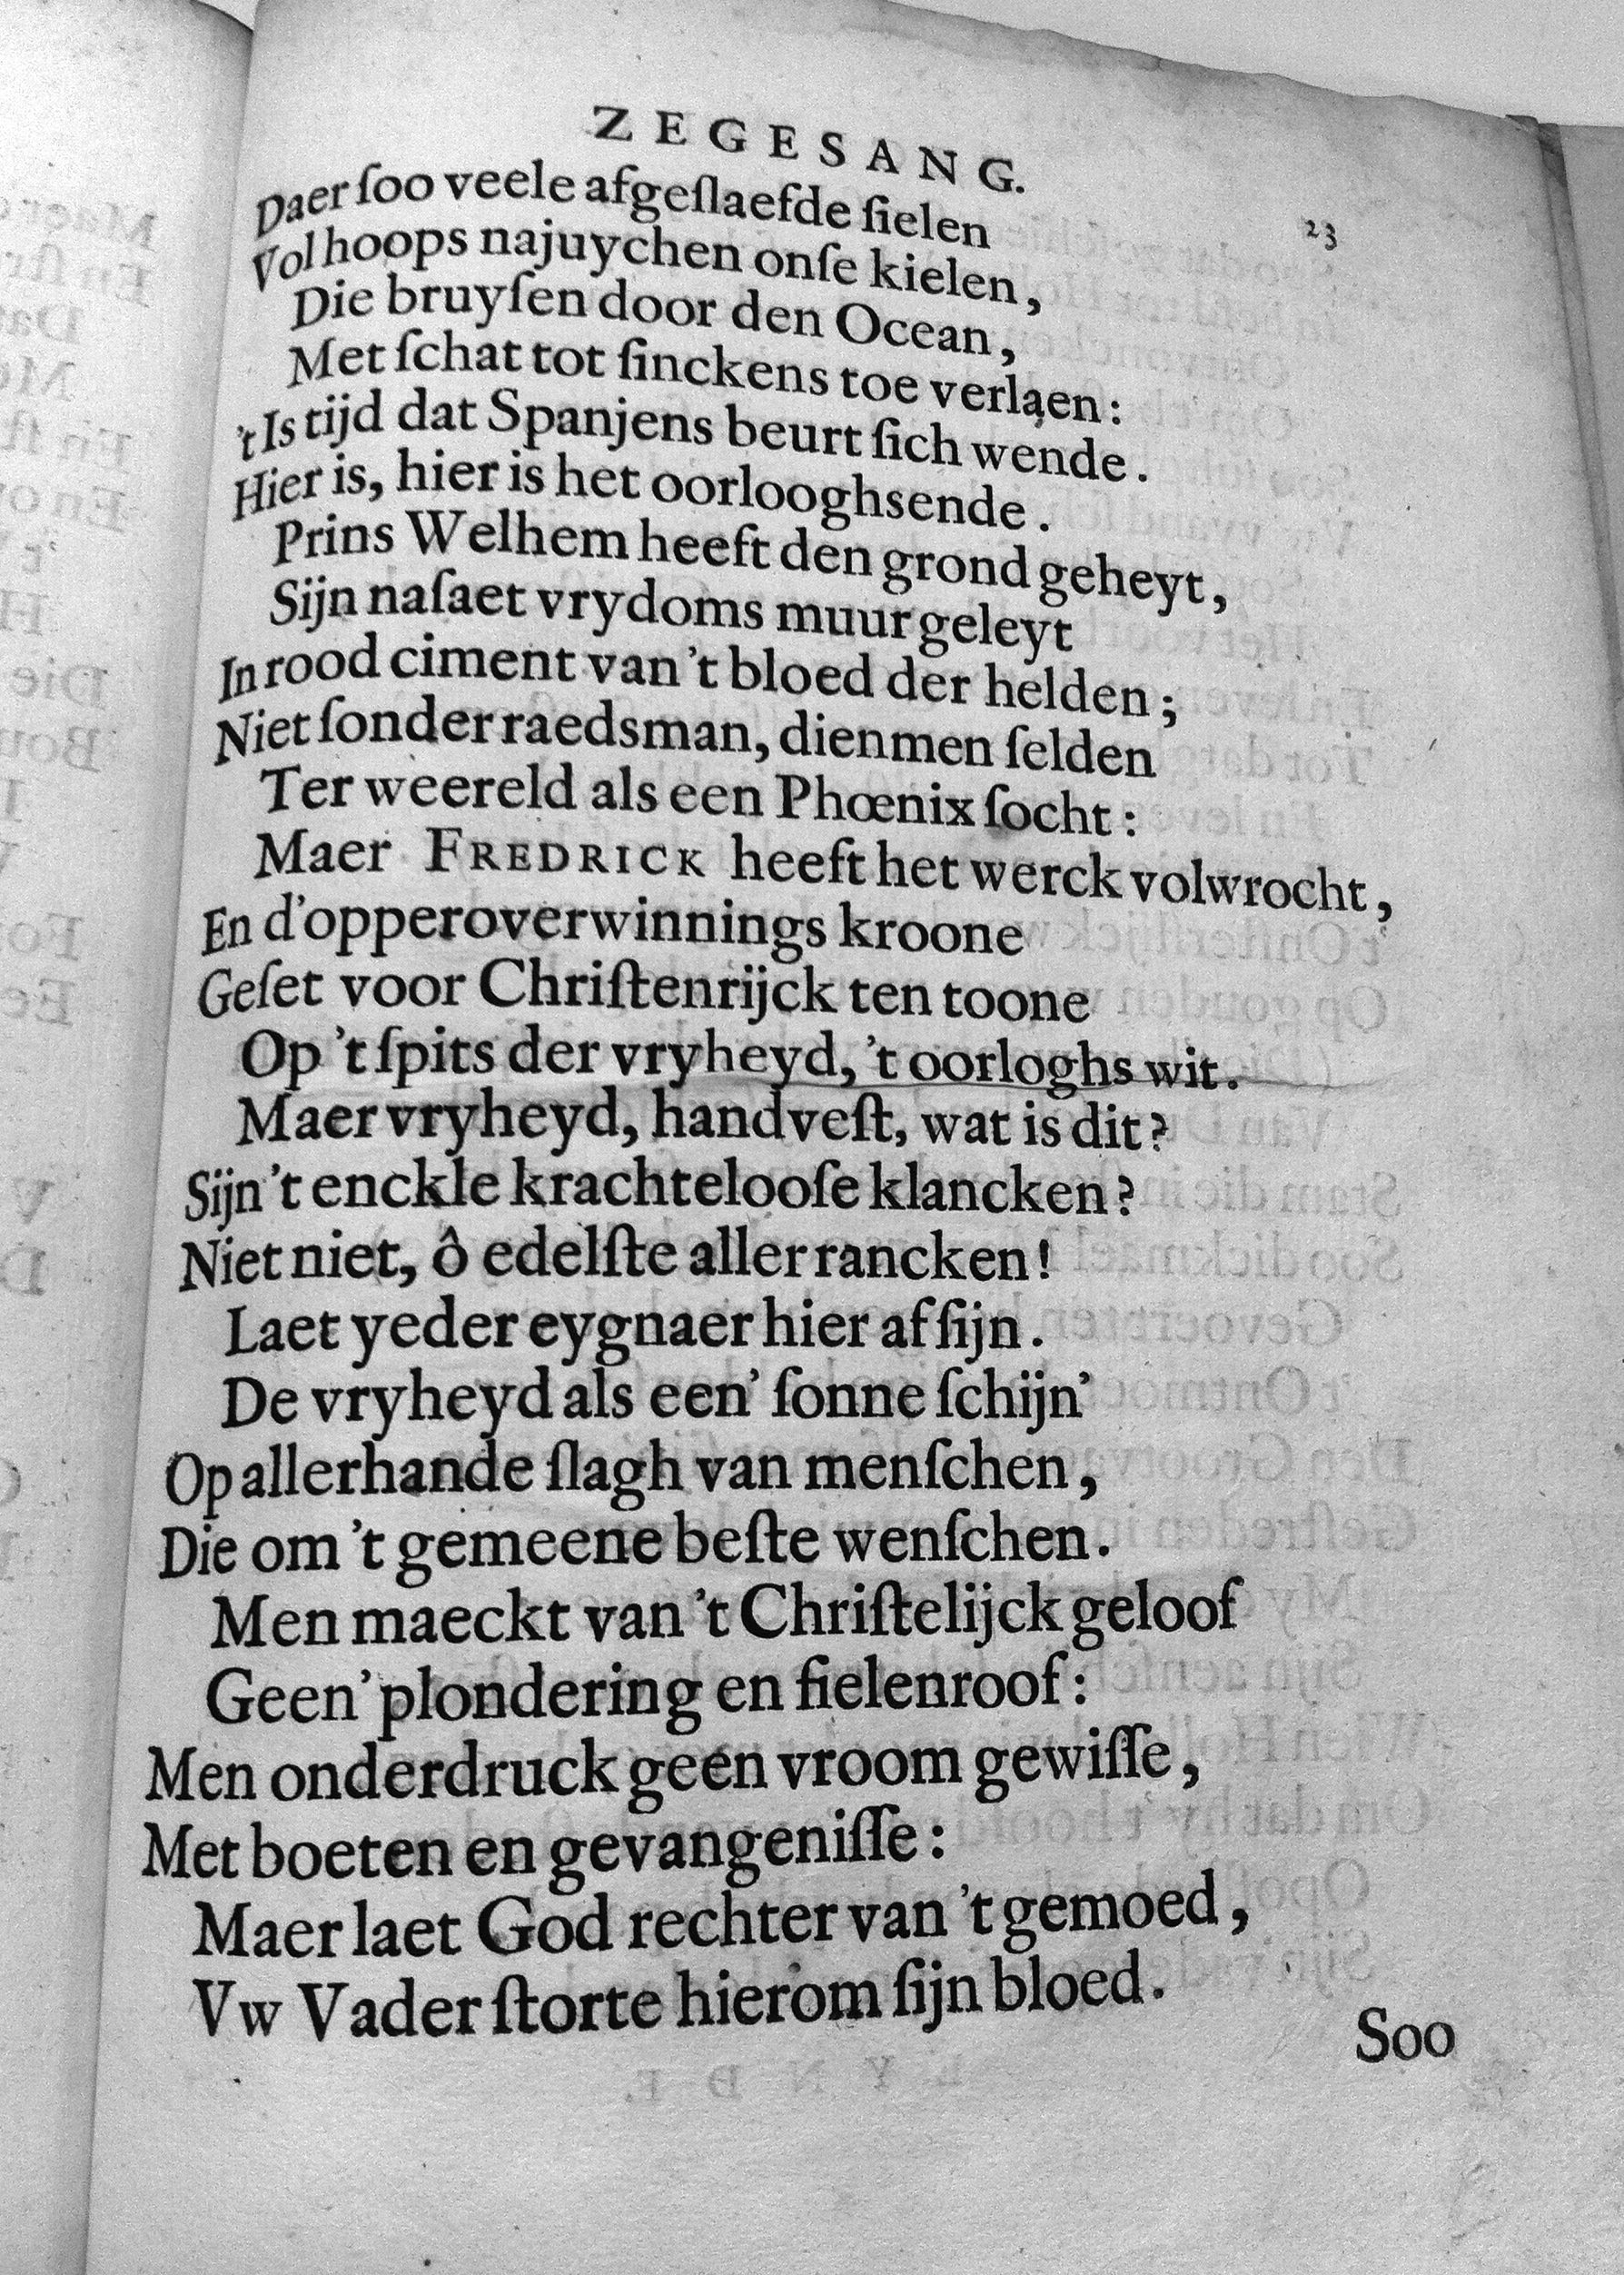 ZEGESANG.
23
Daer ſoo veele afgeſlaefde ſielen
Vol hoops najuychen onſe kielen,
Die bruyſen door den Ocean,
Met ſchat tot ſinckens toe verlaen:
't Is tijd dat Spanjens beurt ſich wende.
Hier is, hier is het oorlooghsende.
Prins Welhem heeft den grond geheyt,
Sijn naſaet vrydoms muur geleyt
In rood ciment van 't bloed der helden;
Niet ſonder raedsman, dienmen ſelden
Ter weereld als een Phœnix ſocht:
Maer FREDRICK heeft het werck volwrocht,
En d'opperoverwinnings kroone
Geſet voor Chriſtenrijck ten toone
Op 't ſpits der vryheyd, 't oorloghs wit.
Maer vryheyd, handveſt, wat is dit?
Sijn 't enckle krachtelooſe klancken?
Niet niet, ô edelſte aller rancken!
Laet yeder eygnaer hier af ſijn.
De vryheyd als een' ſonne ſchijn'
Op allerhande ſlagh van menſchen,
Die om 't gemeene beſte wenſchen.
Men maeckt van 't Chriſtelijck geloof
Geen' plondering en ſielenroof:
Men onderdruck geen vroom gewiſſe,
Met boeten en gevangeniſſe:
Maer laet God rechter van 't gemoed,
Vw Vader ſtorte hierom ſijn bloed.
Soo